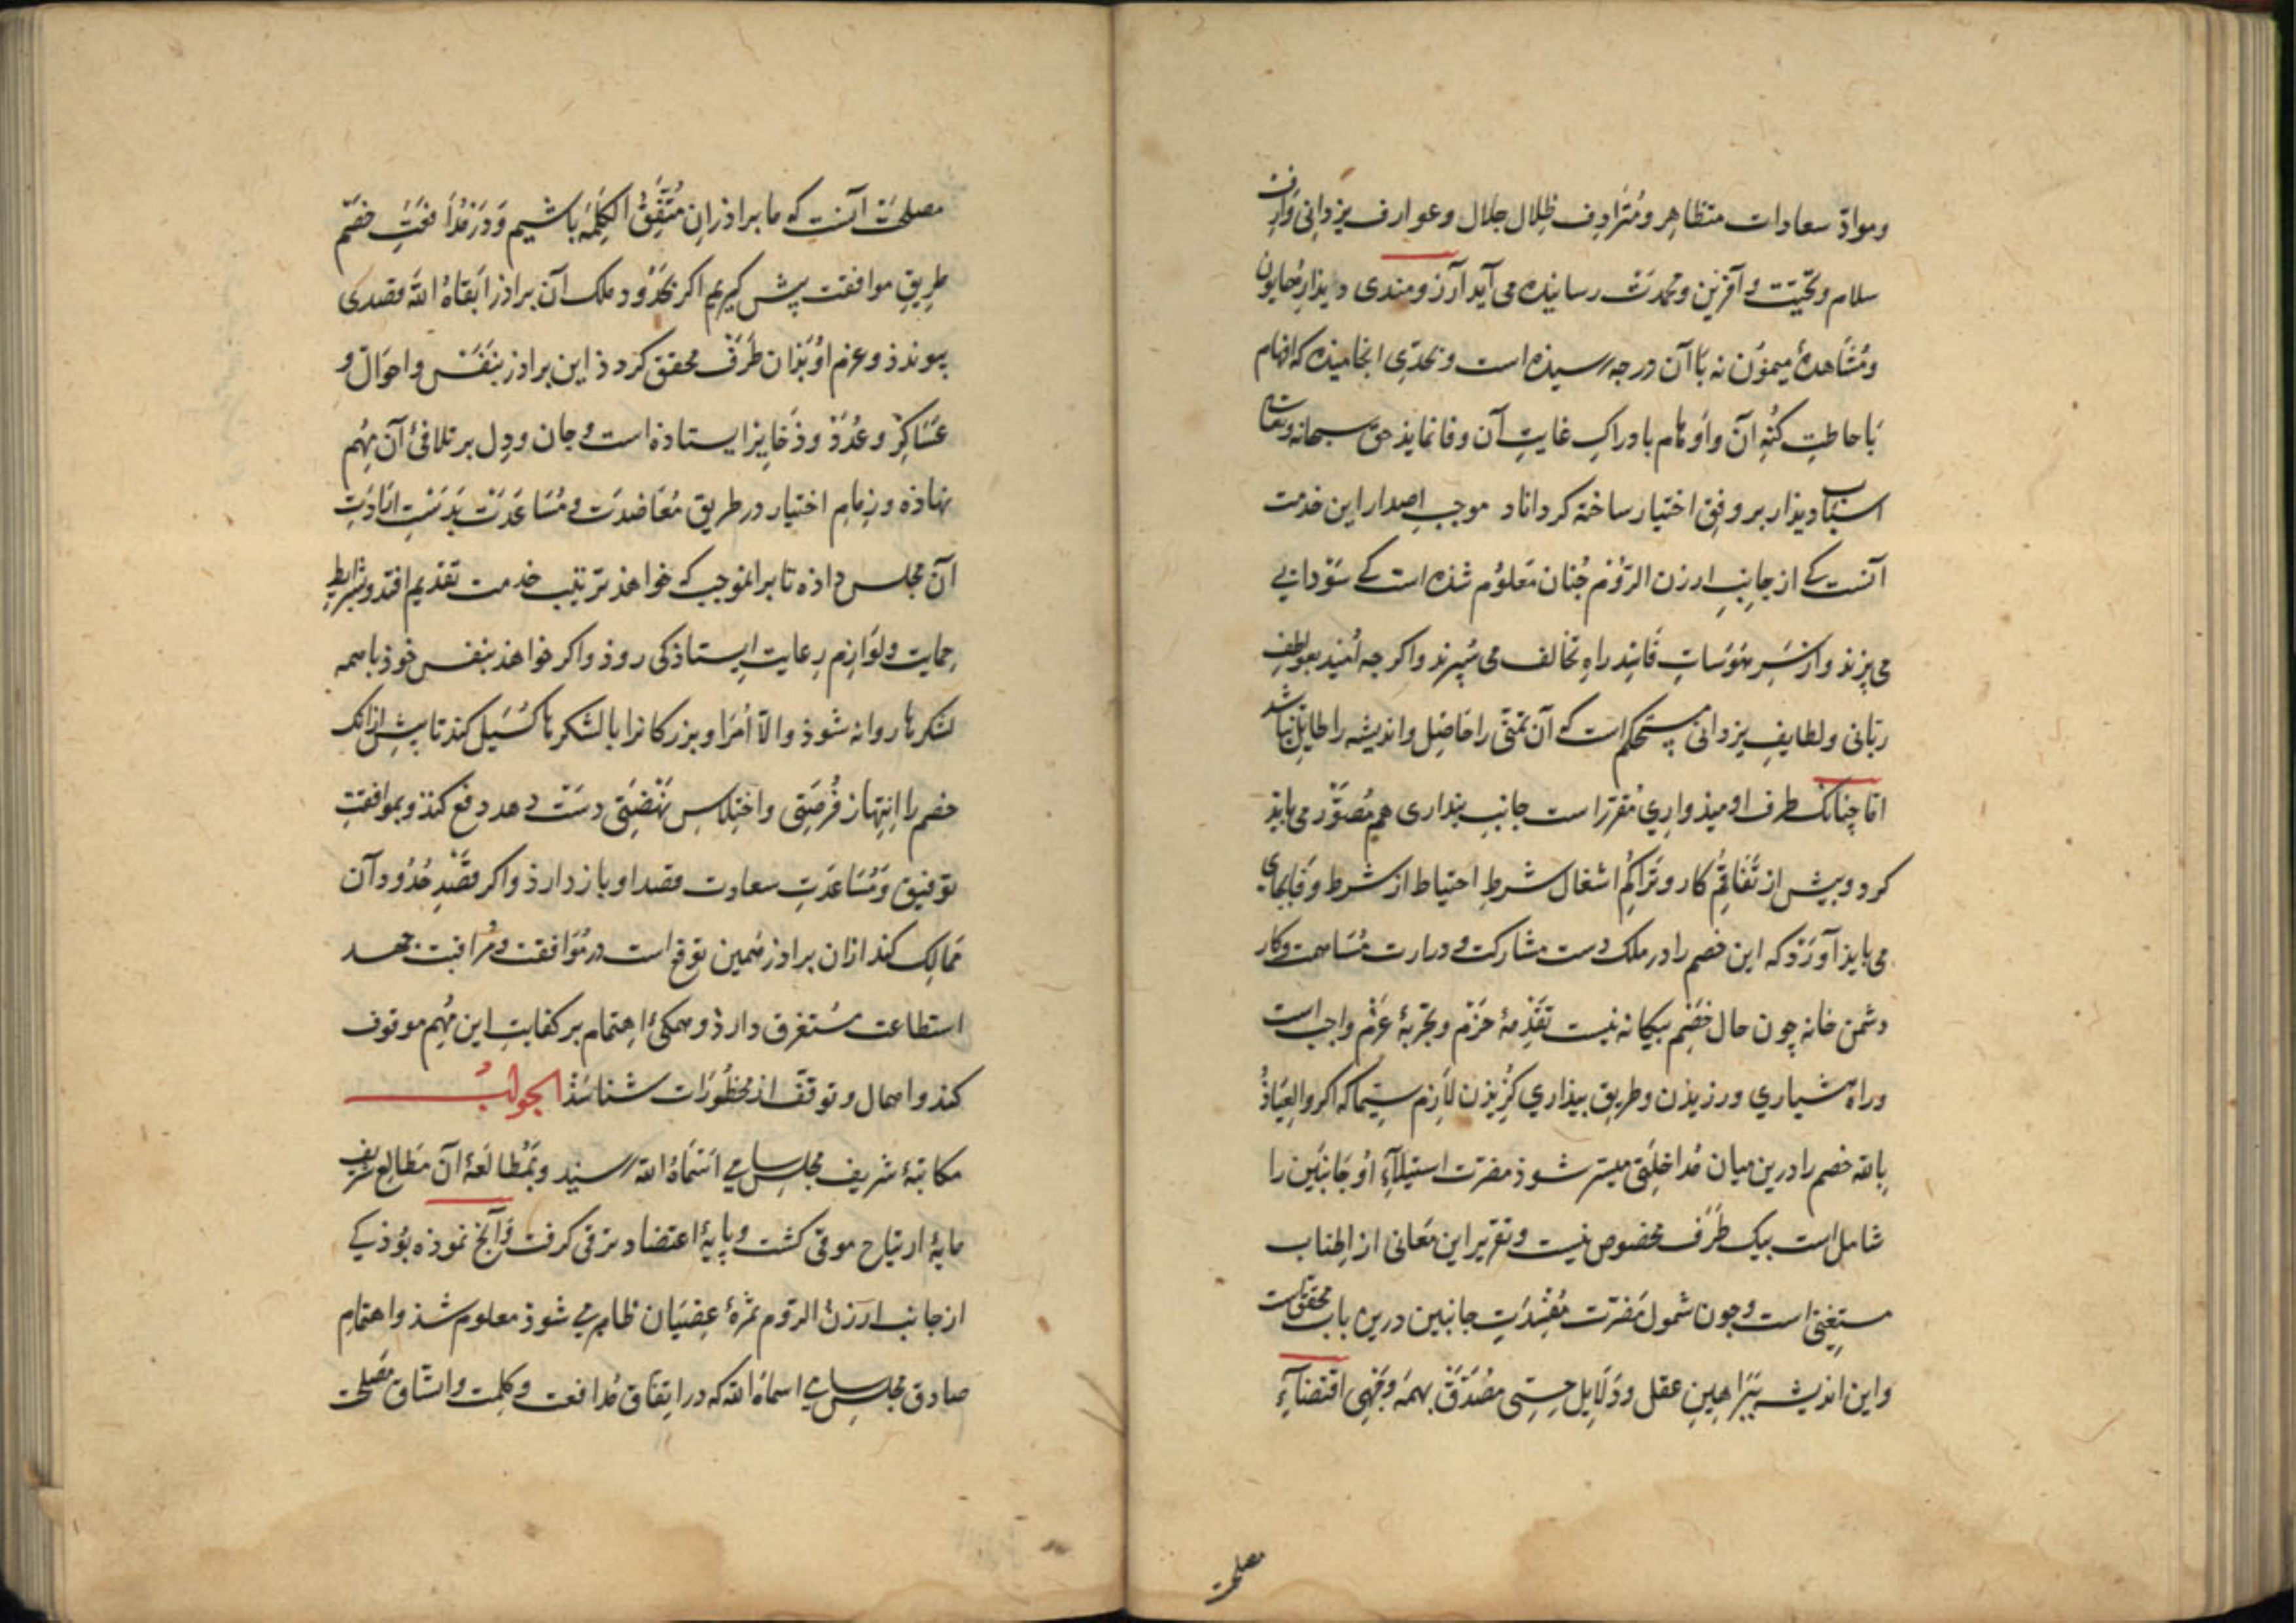 ومواد سعادات متظاهر ومترادف ظلال جلال وعوارف یزدانی وارف
سلام وتحیت و آفرین ومحمدت رسانیده می آید آرزومندی دیدار همایون
ومشاهدهٔ میمون نه باآن درجه رسیذه است و بحدی انجامیذه که افهام
باحاطت کنه آن واوهام بادراک غایت آن وفا نمایذ حق سبحانه وتعالی
اسباب دیذار بر وفق اختیار ساخته کرداناد موجب اصدار این خدمت
آنست کی از جانب ارزن الروم جنان معلوم شذه است کی سودایی
می پزند وازسر هوسات فاسد راه تخالف می سپرند واکرجه امید بعواطف
ربانی ولطایف یزدانی مستحکم است که آن تمنی را حاصل واندیشه را طایل نباشد
اما چنانک طرف اومیذواری مقرر است جانب بیداری هم مصور می باید
کرد وپیش از تفاقم کار وتراکم اشغال شرط احتیاط از شرط وفا بجای
می بایذ آورد که این خصم را در ملک دست مشارکت و در ارث مساهمت وکار
دشمن خانه چون حال خصم بیکانه نیست تقدمهٔ حزم وتجربهٔ عزم واجب است
وراه هشیاری ورزیذن وطریق بیذاری کزیذن لازم سیما که اکر والعیاذ
بالله خصم را درین میان مداخلتی میسر شوذ مضرت استیلاء او جانبین را
شامل است بیک طرف مخصوص نیست وتقریر این معانی از اطناب
مستغنی است وجون شمول مضرت مفسدت جانبین درین باب محقق است
واین اندیشه ببراهین عقل ودلایل حسی مصدق بهمه وجهی اقتضاء
مصلحت
مصلحت آنست که ما براذران متفق الکلمه باشیم ودر مدافعت خصم
طریق موافقت پیش کیریم اکر بحدود ملک آن براذر ابقاه الله قصدی
پیوندذ وعزم او بذان طرف محقق کردذ این براذر بنفس واحوال و
عساکر وعدد وذخایر ایستاذه است وجان ودل بر تلافی آن مهم
نهاذه وزمام اختیار در طریق معاضدت ومساعدت بدست ارادت
آن مجلس داذه تا برانموجب که خواهذ ترتیب خدمت تقدیم افتد وشرایط
حمایت ولوازم رعایت ایستاذکی روذ واکر خواهذ بنفس خوذ باهمه
لشکرها روانه شوذ والا امرا وبزرکانرا با لشکرها کسیل کند تا پیش ازانک
خصم را انتهاز فرصتی واختلاس نهضتی دست دهد دفع کند وبموافقت
توفیق ومساعدت سعادت قصد او باز دارذ واکر قصد حدود آن
ممالک کند ازان براذر همین توقع است در موافقت و مراقبت جهد
استطاعت مستغرق دارذ وهمکی اهتمام بر کفایت این مهم موقوف
کند واهمال وتوقف از محظورات شناسد الجواب
مکاتبهٔ شریف مجلس سامی اسماه الله رسید وبمطالعهٔ آن مطالع شریف
مایهٔ ارتیاح موفی کشت وپایهٔ اعتضاد ترقی کرفت وآنچ نموذه بوذ کی
از جانب ارزن الروم ثمرهٔ عصیان ظاهر می شوذ معلوم شذ واهتمام
صادق مجلس سامی اسماه الله که در اتفاق مدافعت وکلمت واتساق مصلحت